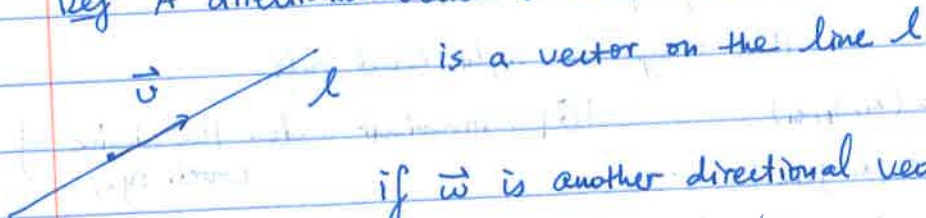 Def A
is a vector on the line l
v⃗
l
if w⃗ is another directional vec